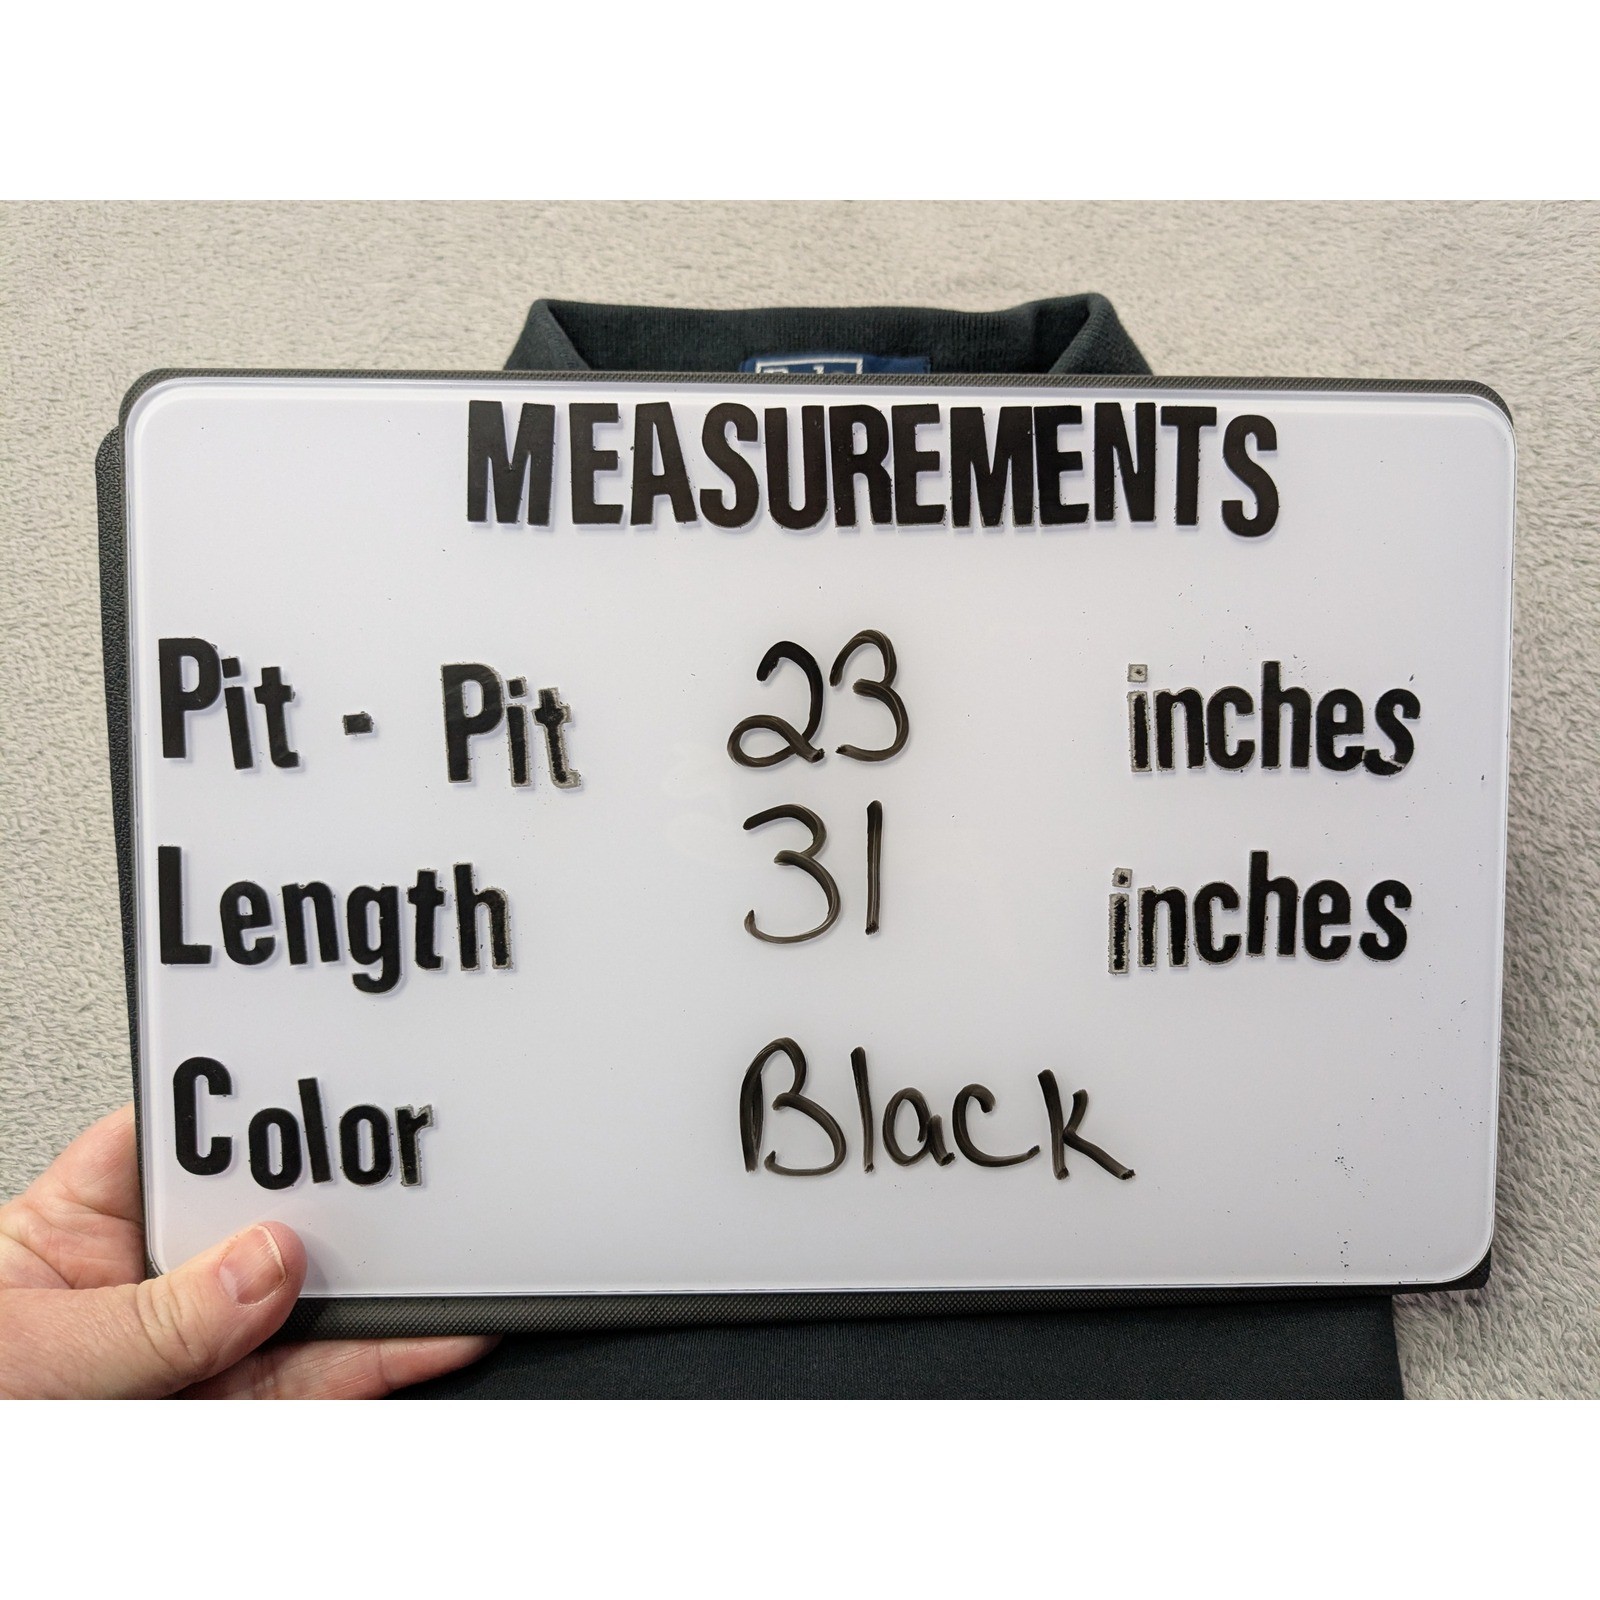 MEASUREMENTS
Pit - Pit 23 inches
Length 31 inches
Color Black